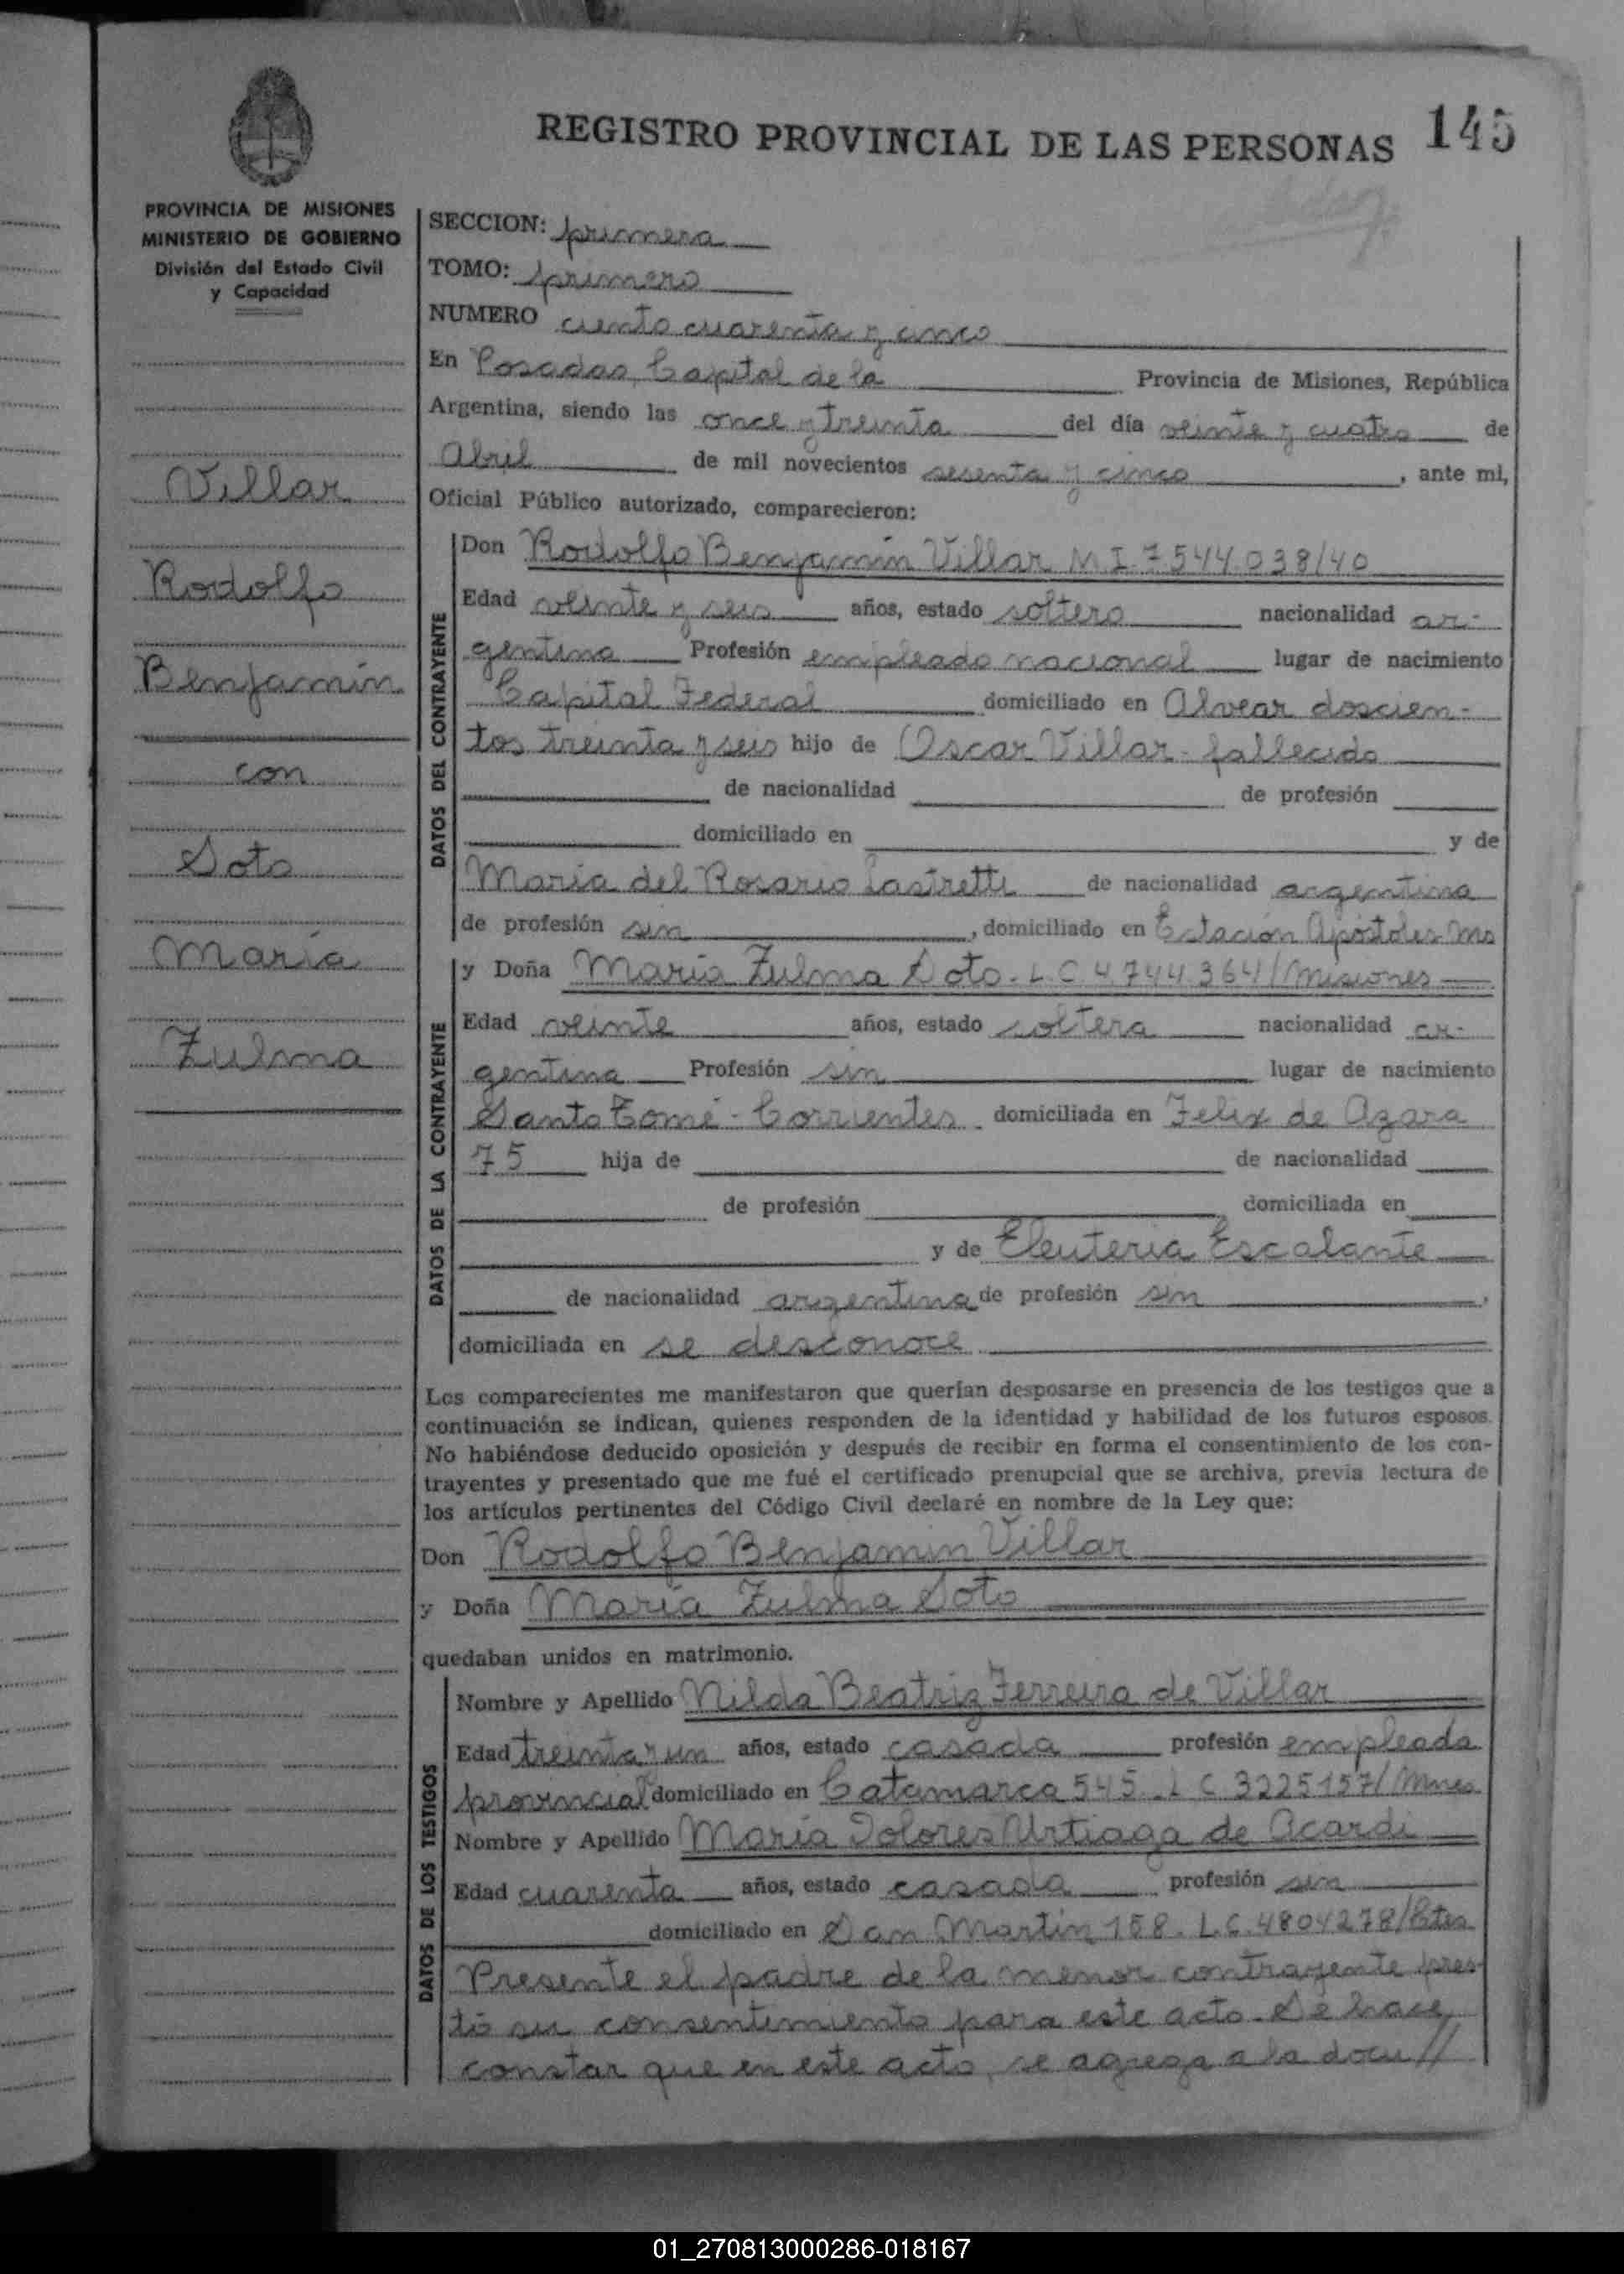 REGISTRO PROVINCIAL DE LAS PERSONAS 145
PROVINCIA DE MISIONES
MINISTERIO DE GOBIERNO
División del Estado Civil
y Capacidad
Villar
Rodolfo
Benjamín
con
Soto
María
Zulma
SECCION: primera
TOMO: primero
NUMERO ciento cuarenta y cinco
En Posadas, Capital de la Provincia de Misiones, República
Argentina, siendo las once y treinta del día veinte y cuatro de
Abril de mil novecientos sesenta y cinco, ante mi,
Oficial Público autorizado, comparecieron:
DATOS DEL CONTRAYENTE
Don Rodolfo Benjamín Villar M.I. 7.544.038/40
Edad veinte y seis años, estado soltero nacionalidad ar-
gentina Profesión empleado nacional lugar de nacimiento
Capital Federal domiciliado en Alvear doscien-
tos treinta y seis hijo de Oscar Villar - fallecido
de nacionalidad de profesión
domiciliado en y de
María del Rosario Lastretti de nacionalidad argentina
de profesión sin, domiciliado en Estación Apóstoles Ms
DATOS DE LA CONTRAYENTE
y Doña María Zulma Soto - L.C. 4.744.364/Misiones
Edad veinte años, estado soltera nacionalidad ar-
gentina Profesión sin lugar de nacimiento
Santo Tomé - Corrientes domiciliada en Felix de Azara
75 hija de de nacionalidad
de profesión domiciliada en
y de Eleuteria Escalante
de nacionalidad argentina de profesión sin,
domiciliada en se desconoce
Los comparecientes me manifestaron que querían desposarse en presencia de los testigos que a
continuación se indican, quienes responden de la identidad y habilidad de los futuros esposos.
No habiéndose deducido oposición y después de recibir en forma el consentimiento de los con-
trayentes y presentado que me fué el certificado prenupcial que se archiva, previa lectura de
los artículos pertinentes del Código Civil declaré en nombre de la Ley que:
Don Rodolfo Benjamin Villar
y Doña María Zulma Soto
quedaban unidos en matrimonio.
DATOS DE LOS TESTIGOS
Nombre y Apellido Nilda Beatriz Ferreira de Villar
Edad treinta y un años, estado casada profesión empleada
provincial domiciliado en Catamarca 545. L C 3225157/Mnes
Nombre y Apellido María Dolores Urtiaga de Acardi
Edad cuarenta años, estado casada profesión sin
domiciliado en San Martín 158. L.C. 4804278/Ctes
Presente el padre de la menor contrayente pres-
tó su consentimiento para este acto. Se hace
constar que en este acto, se agrega a la docu//
01_270813000286-018167